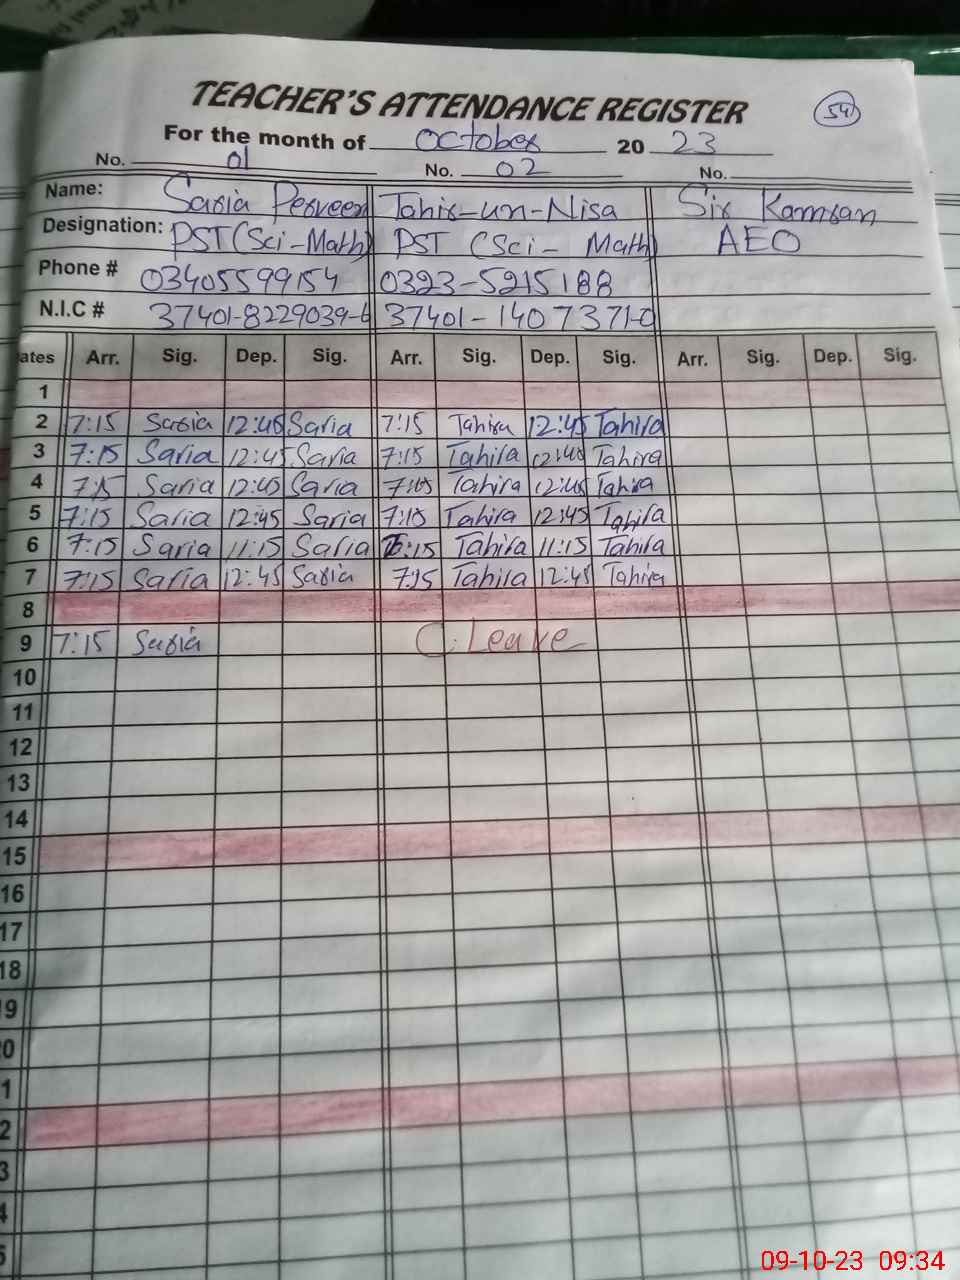 TEACHER'S ATTENDANCE REGISTER
54
For the month of October 20 23
No. 01 No. 02 No.
Name: Saria Perveen Tahir-un-Nisa Sir Kamran
Designation: PST (Sci-Math) PST (Sci-Math) AEO
Phone # 03405599154 0323-5215188
N.I.C # 37401-8229039-6 37401-1407371-0
ates Arr. Sig. Dep. Sig. Arr. Sig. Dep. Sig. Arr. Sig. Dep. Sig.
1
2 7:15 Saria 12:45 Saria 7:15 Tahira 12:45 Tahira
3 7:15 Saria 12:45 Saria 7:15 Tahira 12:45 Tahira
4 7:15 Saria 12:45 Saria 7:15 Tahira 12:45 Tahira
5 7:15 Saria 12:45 Saria 7:15 Tahira 12:45 Tahira
6 7:15 Saria 11:15 Saria :15 Tahira 11:15 Tahira
7 7:15 Saria 12:45 Saria 7:15 Tahira 12:45 Tahira
8
9 7:15 Saria C. Leave
10
11
12
13
14
15
16
17
18
9
0
1
2
3
4
5
09-10-23 09:34